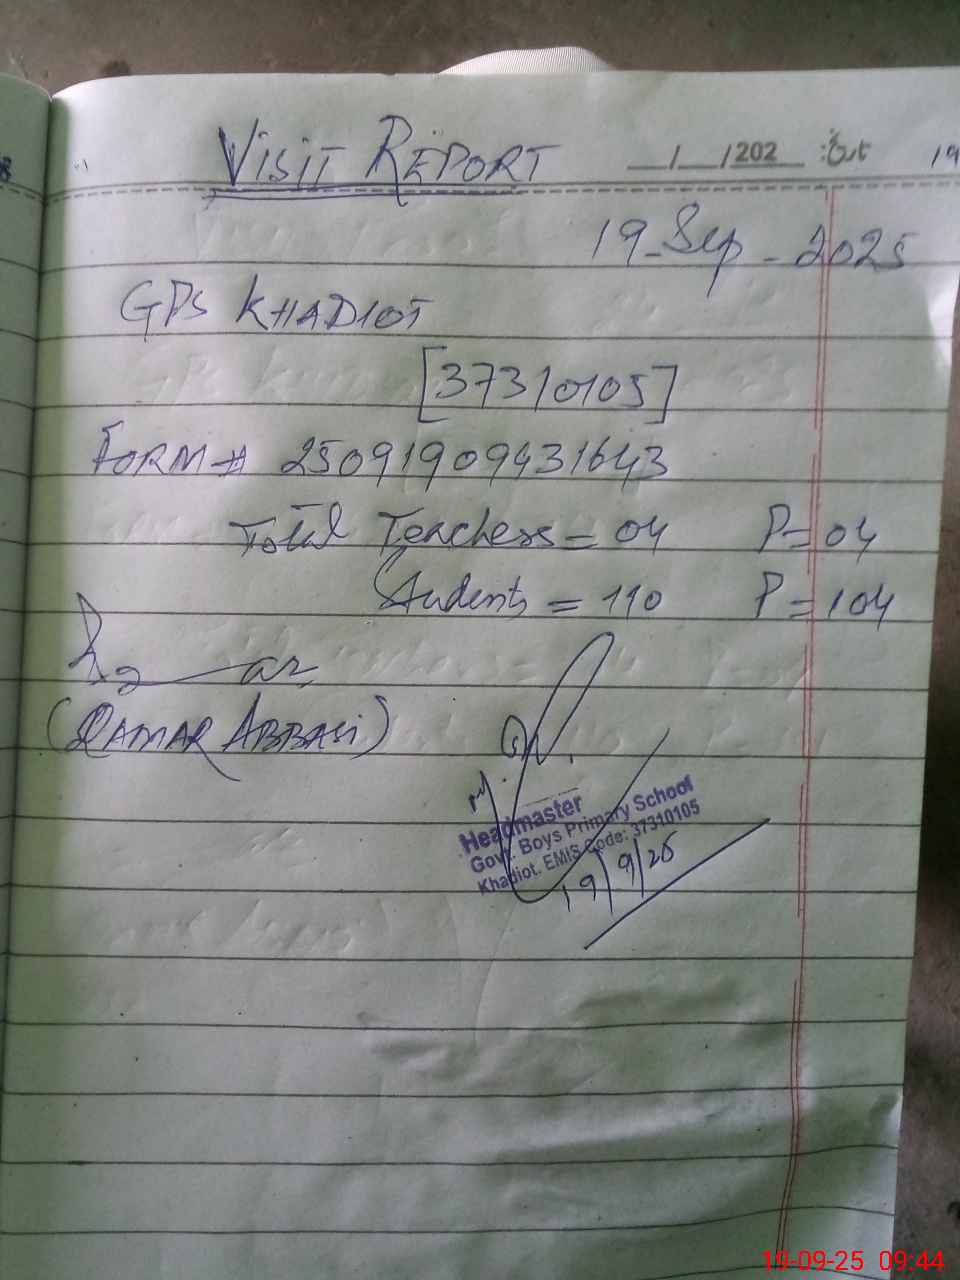 VISIT REPORT
__/__/202__ :تاریخ
19-Sep-2025
GPS KHADIOT
[37310105]
FORM# 25091909431643
Total Teachers = 04 P=04
Students = 110 P=104
(QAMAR ABBASI)
Headmaster
Govt. Boys Primary School
Khadiot. EMIS Code: 37310105
19/9/25
19-09-25 09:44